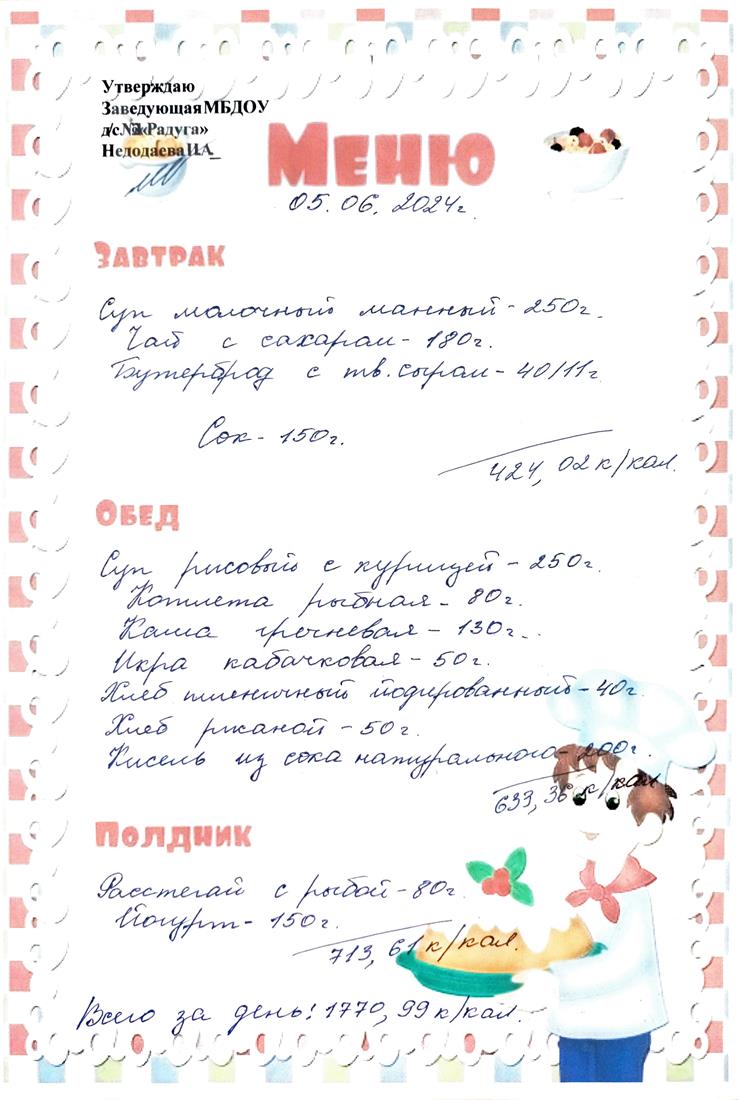 Утверждаю
Заведующая МБДОУ
д/с «Радуга»
Недодаева И.А_
Меню
05.06.2024г.
Завтрак
Суп молочный манный - 250г.
Чай с сахарам - 180г.
Бутерброд с тв.сырам - 40/11г
Сок - 150г.
424,02 к/кал.
Обед
Суп рисовый с курицей - 250г.
Котлета рыбная - 80г.
Каша гречневая - 130г..
Икра кабачковая - 50г.
Хлеб пшеничный йодированный - 40г.
Хлеб ржаной - 50г.
Кисель из сока натурального - 200г.
633,36 к/кал
Полдник
Расстегай с рыбой - 80г.
Йогурт - 150г.
713,61 к/кал.
Всего за день: 1770,99 к/кал.